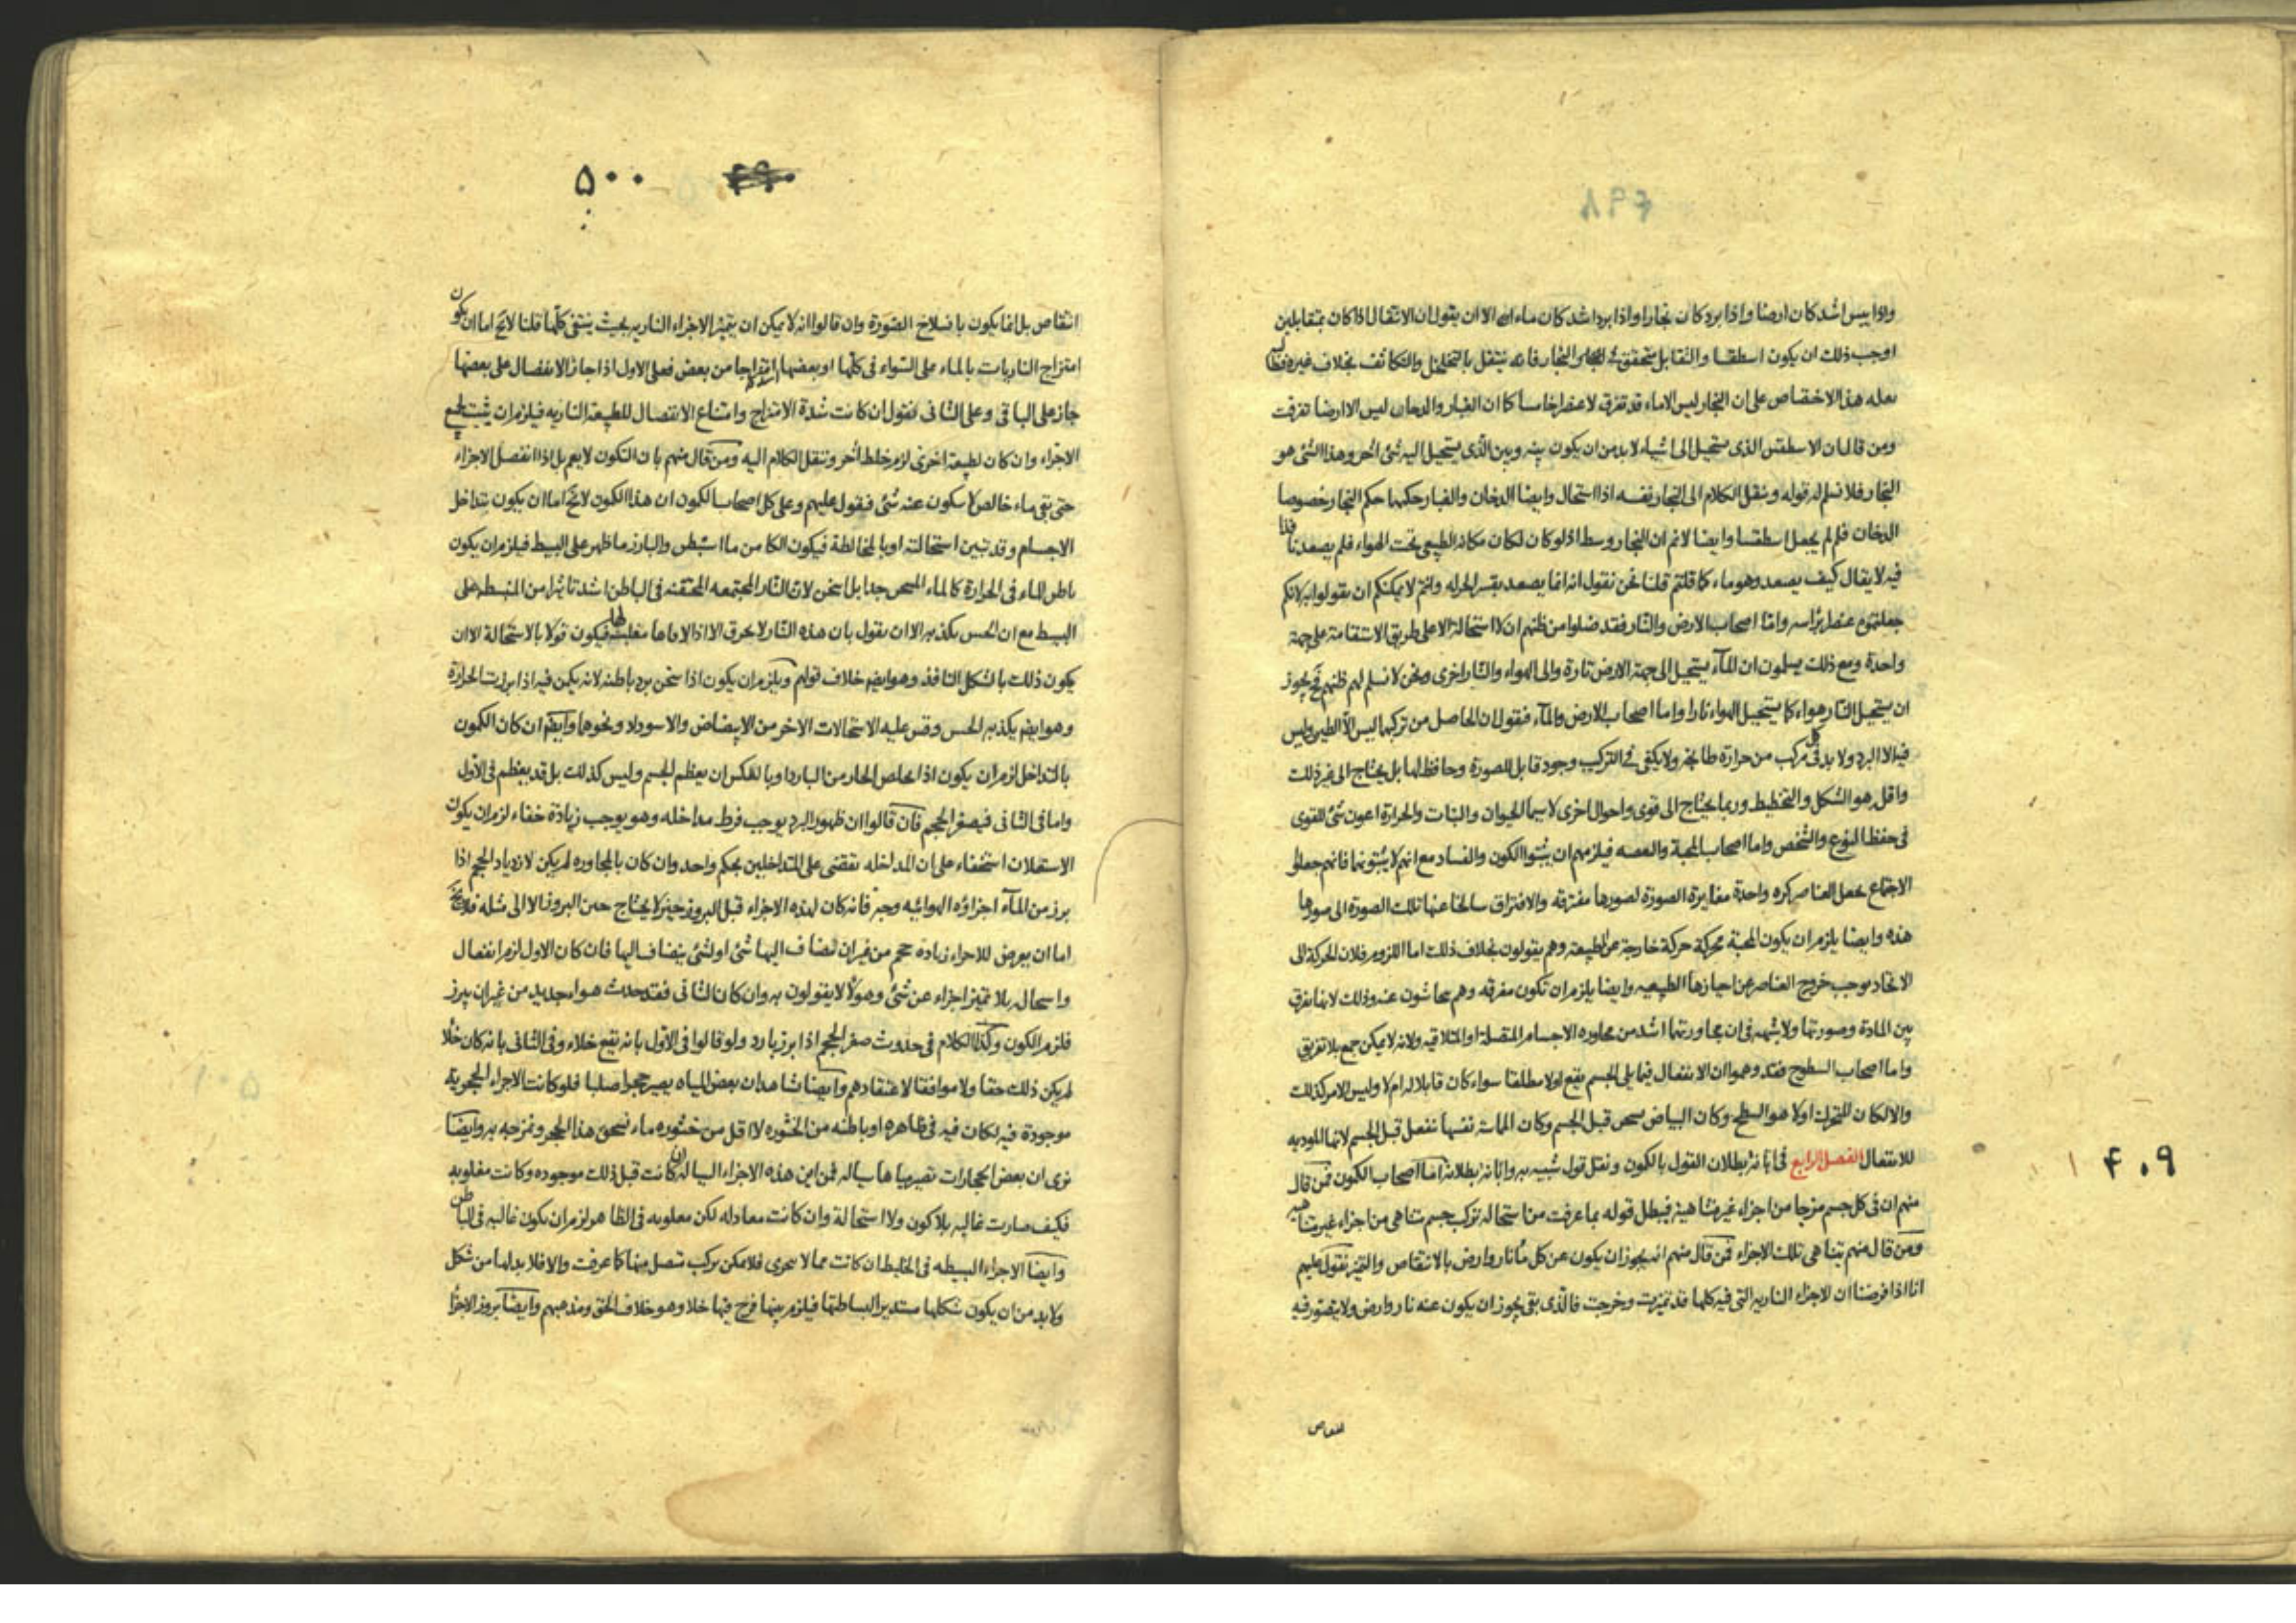 واذا يبس اشد كان ارضا واذا برد كان بخارا واذا برد اشد كان ماء الا ان يقول ان الانتقال اذا كان بمتقابلين
اوجب ذلك ان يكون اسطقسا والتقابل متحقق والبخار فانه ينتقل بالتخلخل والتكاثف بخلاف غيره
هذا الاختصاص على ان البخار ليس الا ماء قد تفرق لا عنصرا خامسا كما ان الغبار والدخان ليس الا ارضا تفرقت
ومن قال ان الاسطقس الذى يستحيل الى اشياء لا بد من ان يكون بينه وبين الذى يستحيل اليه شئ اخر وهذا الشئ هو
البخار فلا نسلم له قوله وننقل الكلام الى البخار نفسه اذا استحال وايضا الدخان والغبار حكمهما حكم البخار خصوصا
الدخان فلم لم يجعل اسطقسا وايضا لا نم ان البخار وسط اذ لو كان لكان مكانه الطبيعى تحت الهواء فلم يصعد
فيه لا يقال كيف يصعد وهو ماء كما قلتم قلنا نحن نقول انه انما يصعد بقسر الحراره وانتم لا يمكنكم ان تقولوا به لانكم
جعلتموه عنصرا براسه واما اصحاب الارض والنار فقد ضلوا من ظنهم ان لا استحالة الا على طريق الاستقامة على جهة
واحدة ومع ذلك يسلمون ان الماء يستحيل الى جهة الارض تارة والى الهواء والنار اخرى ونحن لا نسلم لهم ظنهم يجوز
ان يستحيل النار هواء كما يستحيل الهواء نارا واما اصحاب الارض والماء فنقول ان الحاصل من تركبهما ليس الا الطين وليس
فيه الا البرد ولا بد فى كل مركب من حرارة طابخة ولا يكفى فى التركيب وجود قابل للصورة وحافظ لها بل يحتاج الى غير ذلك
واقله هو الشكل والتخطيط وربما يحتاج الى قوى واحوال اخرى لا سيما الحيوان والنبات والحرارة اعون شئ للقوى
فى حفظ النوع والشخص واما اصحاب المحبة والغلبه فيلزمهم ان يثبتوا الكون والفساد مع انهم لا يثبتونها فانهم جعلوا
الاجتماع يجعل العناصر كره واحدة مغايرة الصورة لصورها مفترقة والافتراق سالخا عنها تلك الصورة الى صورها
هذه وايضا يلزم ان يكون المحبة محركة حركة خارجة عن الطبيعة وهم يقولون بخلاف ذلك اما اللزوم فلان الحركة الى
الاتحاد يوجب خروج العناصر عن احيازها الطبيعيه وايضا يلزم ان تكون مفرقه وهم يتحاشون عنه وذلك لانها تفرق
بين المادة وصورتها ولا شبهة فى ان مجاورتها اشد من مجاوره الاجسام المتصلة او المتلاقيه ولانه لا يمكن جمع بلا تفريق
واما اصحاب السطوح فقد وهموا ان الانفعال فيما يلى الجسم يقع اولا مطلقا سواء كان قابلا له ام لا وليس الامر كذلك
والا لكان المتحرك اولا هو السطح وكان البياض يسخن قبل الجسم وكان المماسة نفسها تنفعل قبل الجسم لانها المؤديه
للانفعال الفصل الرابع فى ابانة بطلان القول بالكمون ونقل قول شبيه به وابانة بطلانه اما اصحاب الكمون فمن قال
منهم ان فى كل جسم مزجا من اجزاء غير متناهية فيبطل قوله بما عرفت من استحالة تركب جسم متناهى من اجزاء غير متناهيه
ومن قال منهم بتناهى تلك الاجزاء فمن قال منهم انه يجوز ان يكون عن كل ماء نار وارض بالانتقاص والتميز نقول عليهم
انا اذا فرضنا ان الاجزاء الناريه التى فيه كلها قد تميزت وخرجت فالذى بقى يجوز ان يكون عنه نار وارض ولا يتصور فيه
انتقاص
۴۰۹
۵۰۰
انتقاص بل انما يكون بانسلاخ الصورة وان قالوا انه لا يمكن ان يتميز الاجزاء الناريه بحيث ينتفى كلها قلنا لا يخ اما ان يكون
امتزاج الناريات بالماء على السواء فى كلها او بعضها اشد امتزاجا من بعض فعلى الاول اذا جاز الانفصال على بعضها
جاز على الباقى وعلى الثانى نقول ان كانت شدة الامتزاج وامتناع الانفصال للطبيعة الناريه فيلزم ان يثبت لجميع
الاجزاء وان كان لطبيعة اخرى لزم خلط اخر وننقل الكلام اليه ومن قال منهم بان التكون لا يعم بل اذا انفصل الاجزاء
حتى بقى ماء خالص لا يتكون عنه شئ فنقول عليهم وعلى كل اصحاب الكمون ان هذا الكمون لا يخ اما ان يكون بتداخل
الاجسام وقد تبين استحالته او بالمخالطة فيكون الكامن ما استبطن والبارز ما ظهر على البسيط فيلزم ان يكون
باطن الماء فى الحرارة كالماء المسخن جدا بل اسخن لان النار المجتمعه المحتقنه فى الباطن اشد تاثيرا من المنبسطة على
البسيط مع ان الحس يكذبه الا ان يقول بان هذه النار لا يحرق الا اذا لاقاها فيكون قولا بالاستحالة الا ان
يكون ذلك بالشكل النافذ وهو ايضا خلاف قولهم ويلزم ان يكون اذا سخن برد باطنه لانه يكمن فيه اذا برزت الحرارة
وهو ايضا يكذبه الحس وقس عليه الاستحالات الاخر من الابيضاض والاسوداد ونحوها وايضا ان كان الكمون
بالتداخل لزم ان يكون اذا تخلص الحار من البارد او بالعكس ان يعظم الجسم وليس كذلك بل قد يعظم فى الاول
واما فى الثانى فيصغر الحجم فان قالوا ان ظهور البرد يوجب فرط مداخله وهو يوجب زيادة خفاء لزم ان يكون
الاستعلان استخفاء على ان المداخله تقتضى على المتداخلين بحكم واحد وان كان بالمجاوره لم يكن لازدياد الحجم اذا
برز من الماء اجزاؤه الهوائيه وجه فانه كان لهذه الاجزاء قبل البروز حيز لا يحتاج حين البروز الا الى مثله فلا يخ
اما ان يعرض للاجزاء زياده حجم من غير ان تضاف اليها شئ او لشئ ينضاف اليها فان كان الاول لزم انفعال
واستحاله بلا تميز اجزاء عن شئ وهؤلاء لا يقولون به وان كان الثانى فقد حدث هواء جديد من غير ان يبرز
فلزم الكون وكذا الكلام فى حدوث صغر الحجم اذا برز بارد ولو قالوا فى الاول بانه يقع خلاء وفى الثانى بانه كان خلا
لم يكن ذلك حقا ولا موافقا لاعتقادهم وايضا نشاهد ان بعض المياه يصير حجرا صلبا فلو كانت الاجزاء الحجرية
موجودة فيه لكان فيه فى ظاهره او باطنه من الخثوره لا اقل من خثوره ماء نسحق هذا الحجر ونمزجه به وايضا
نرى ان بعض الحجارات نصيرها مياها سيالة فمن اين هذه الاجزاء السيالة ان كانت قبل ذلك موجوده وكانت مغلوبه
فكيف صارت غالبه بلا كون ولا استحالة وان كانت معادله لكن مغلوبه فى الظاهر لزم ان يكون غالبه فى الباطن
وايضا الاجزاء البسيطه فى الخليط ان كانت مما لا يتجزى فلا يمكن تركب متصل منها كما عرفت والا فلا بد لها من شكل
ولا بد من ان يكون شكلها مستديرا لبساطتها فيلزم بينها فرج فيها خلا وهو خلاف الحق ومذهبهم وايضا بروز الاجزا